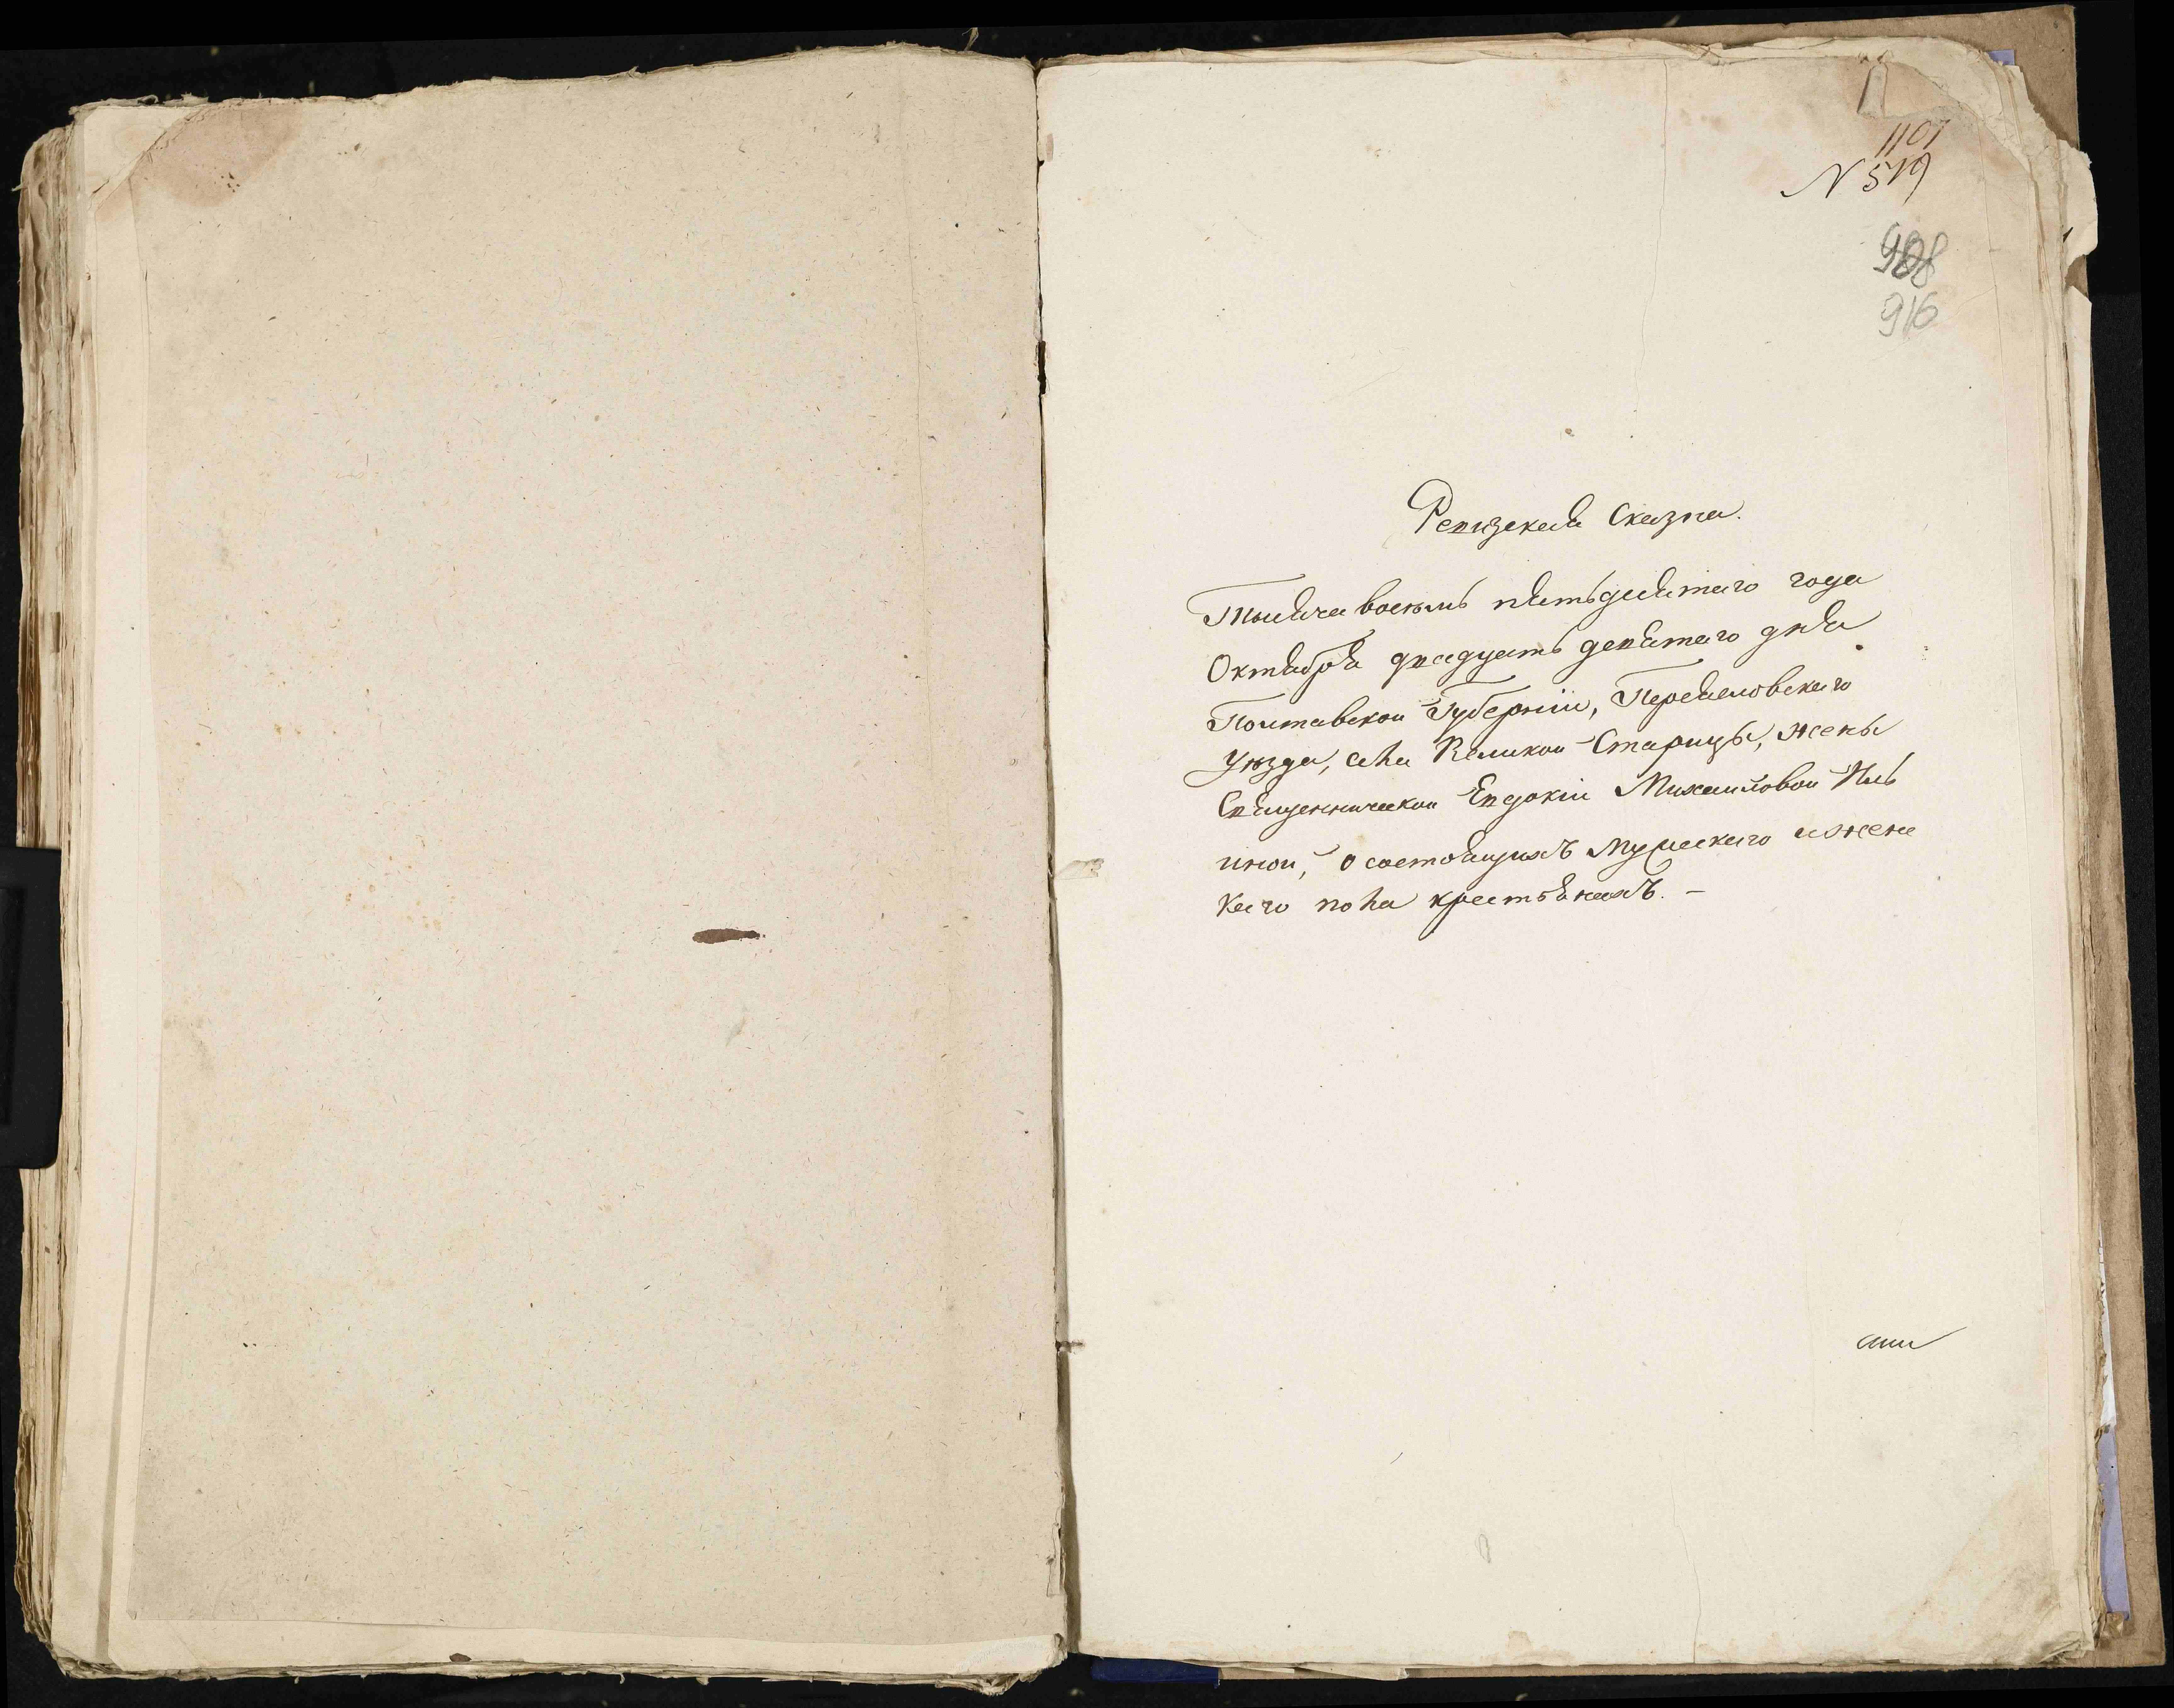 1101
N 519
908
916
Ревизская Сказка.
Тысяча восемь пятьдесятаго года
Октября двадцать девятаго дня
Полтавской Губерніи, Переяславскаго
уѣзда, села Великой Старицы, жены
Священнической Евдокіи Михайловой Иль
иной, о состоящихъ мужескаго и жен
каго пола крестьянахъ. –